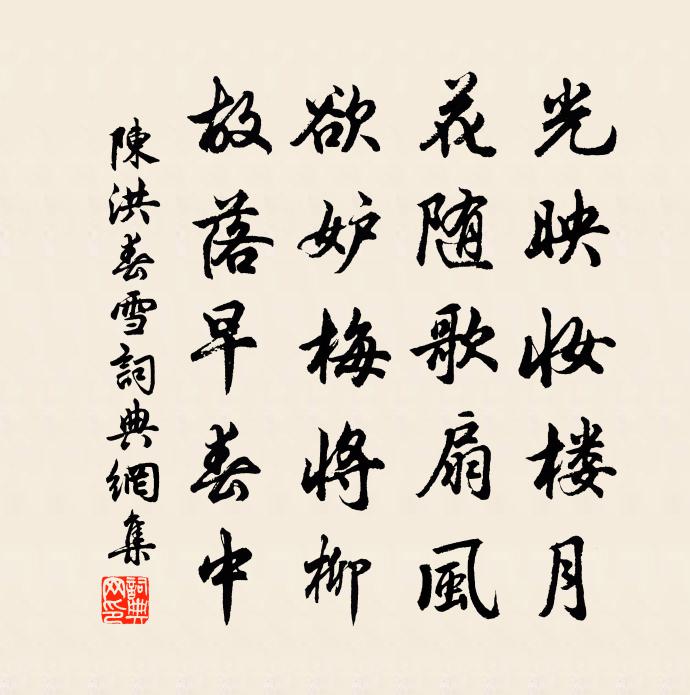 光映妆楼月
花随歌扇風
欲妒梅将柳
故落早春中
陳洪春雪詞典網集
詞典網印